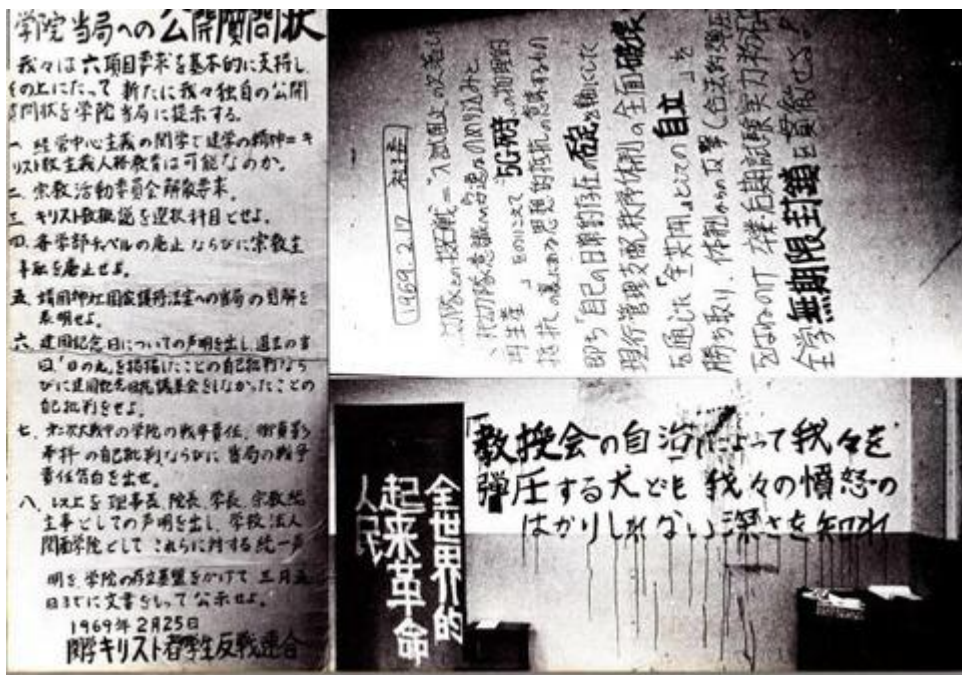 学院当局への公開質問状
我々は六項目要求を基本的に支持し
その上にたって新たに我々独自の公開
質問状を学院当局に提示する。
一、経営中心主義の関学で建学の精神=キ
リスト教主義人格教育は可能なのか。
二、宗教活動委員会解散要求。
三、キリスト教概説を選択科目とせよ。
四、各学部チャペルの廃止ならびに宗教主
事職を廃止せよ。
五、靖国神社国家護持法案への当局の見解を
表明せよ。
六、建国記念日についての声明を出し過去の当
日「日の丸」を掲揚したことの自己批判なら
びに建国記念日抗議集会をしなかったことの
自己批判をせよ。
七、第二次大戦中の学院の戦争責任、
の自己批判ならびに当局の戦争
責任告白を出せ。
八、以上を理事長、院長、学長、宗教総
主事としての声明を出し、学校法人
関西学院としてこれらに対する統一声
明を学院の存立基盤をかけて三月五
日までに文書をもって公示せよ。
1969年2月25日
関学キリスト者学生反戦連合
1969.2.17 社学
再生産" そのにえて "5G死守"の物理的
抵抗の裏にある思想的抵抗の意味するもの
即ち「自己の日常的存在の砲を軸にした
現行管理支配秩序体制の全面破壊
を通じた「全共闘」としての自立」を
勝ち取り、体制からの攻撃(合法的弾圧
卒業・后期試験実力粉砕
全学無期限封鎖を貫徹せよ!
全世界的
起来革命
人民
「教授会の自治」によって我々を
弾圧する犬ども 我々の憤怒の
はかりしれない深さを知れ